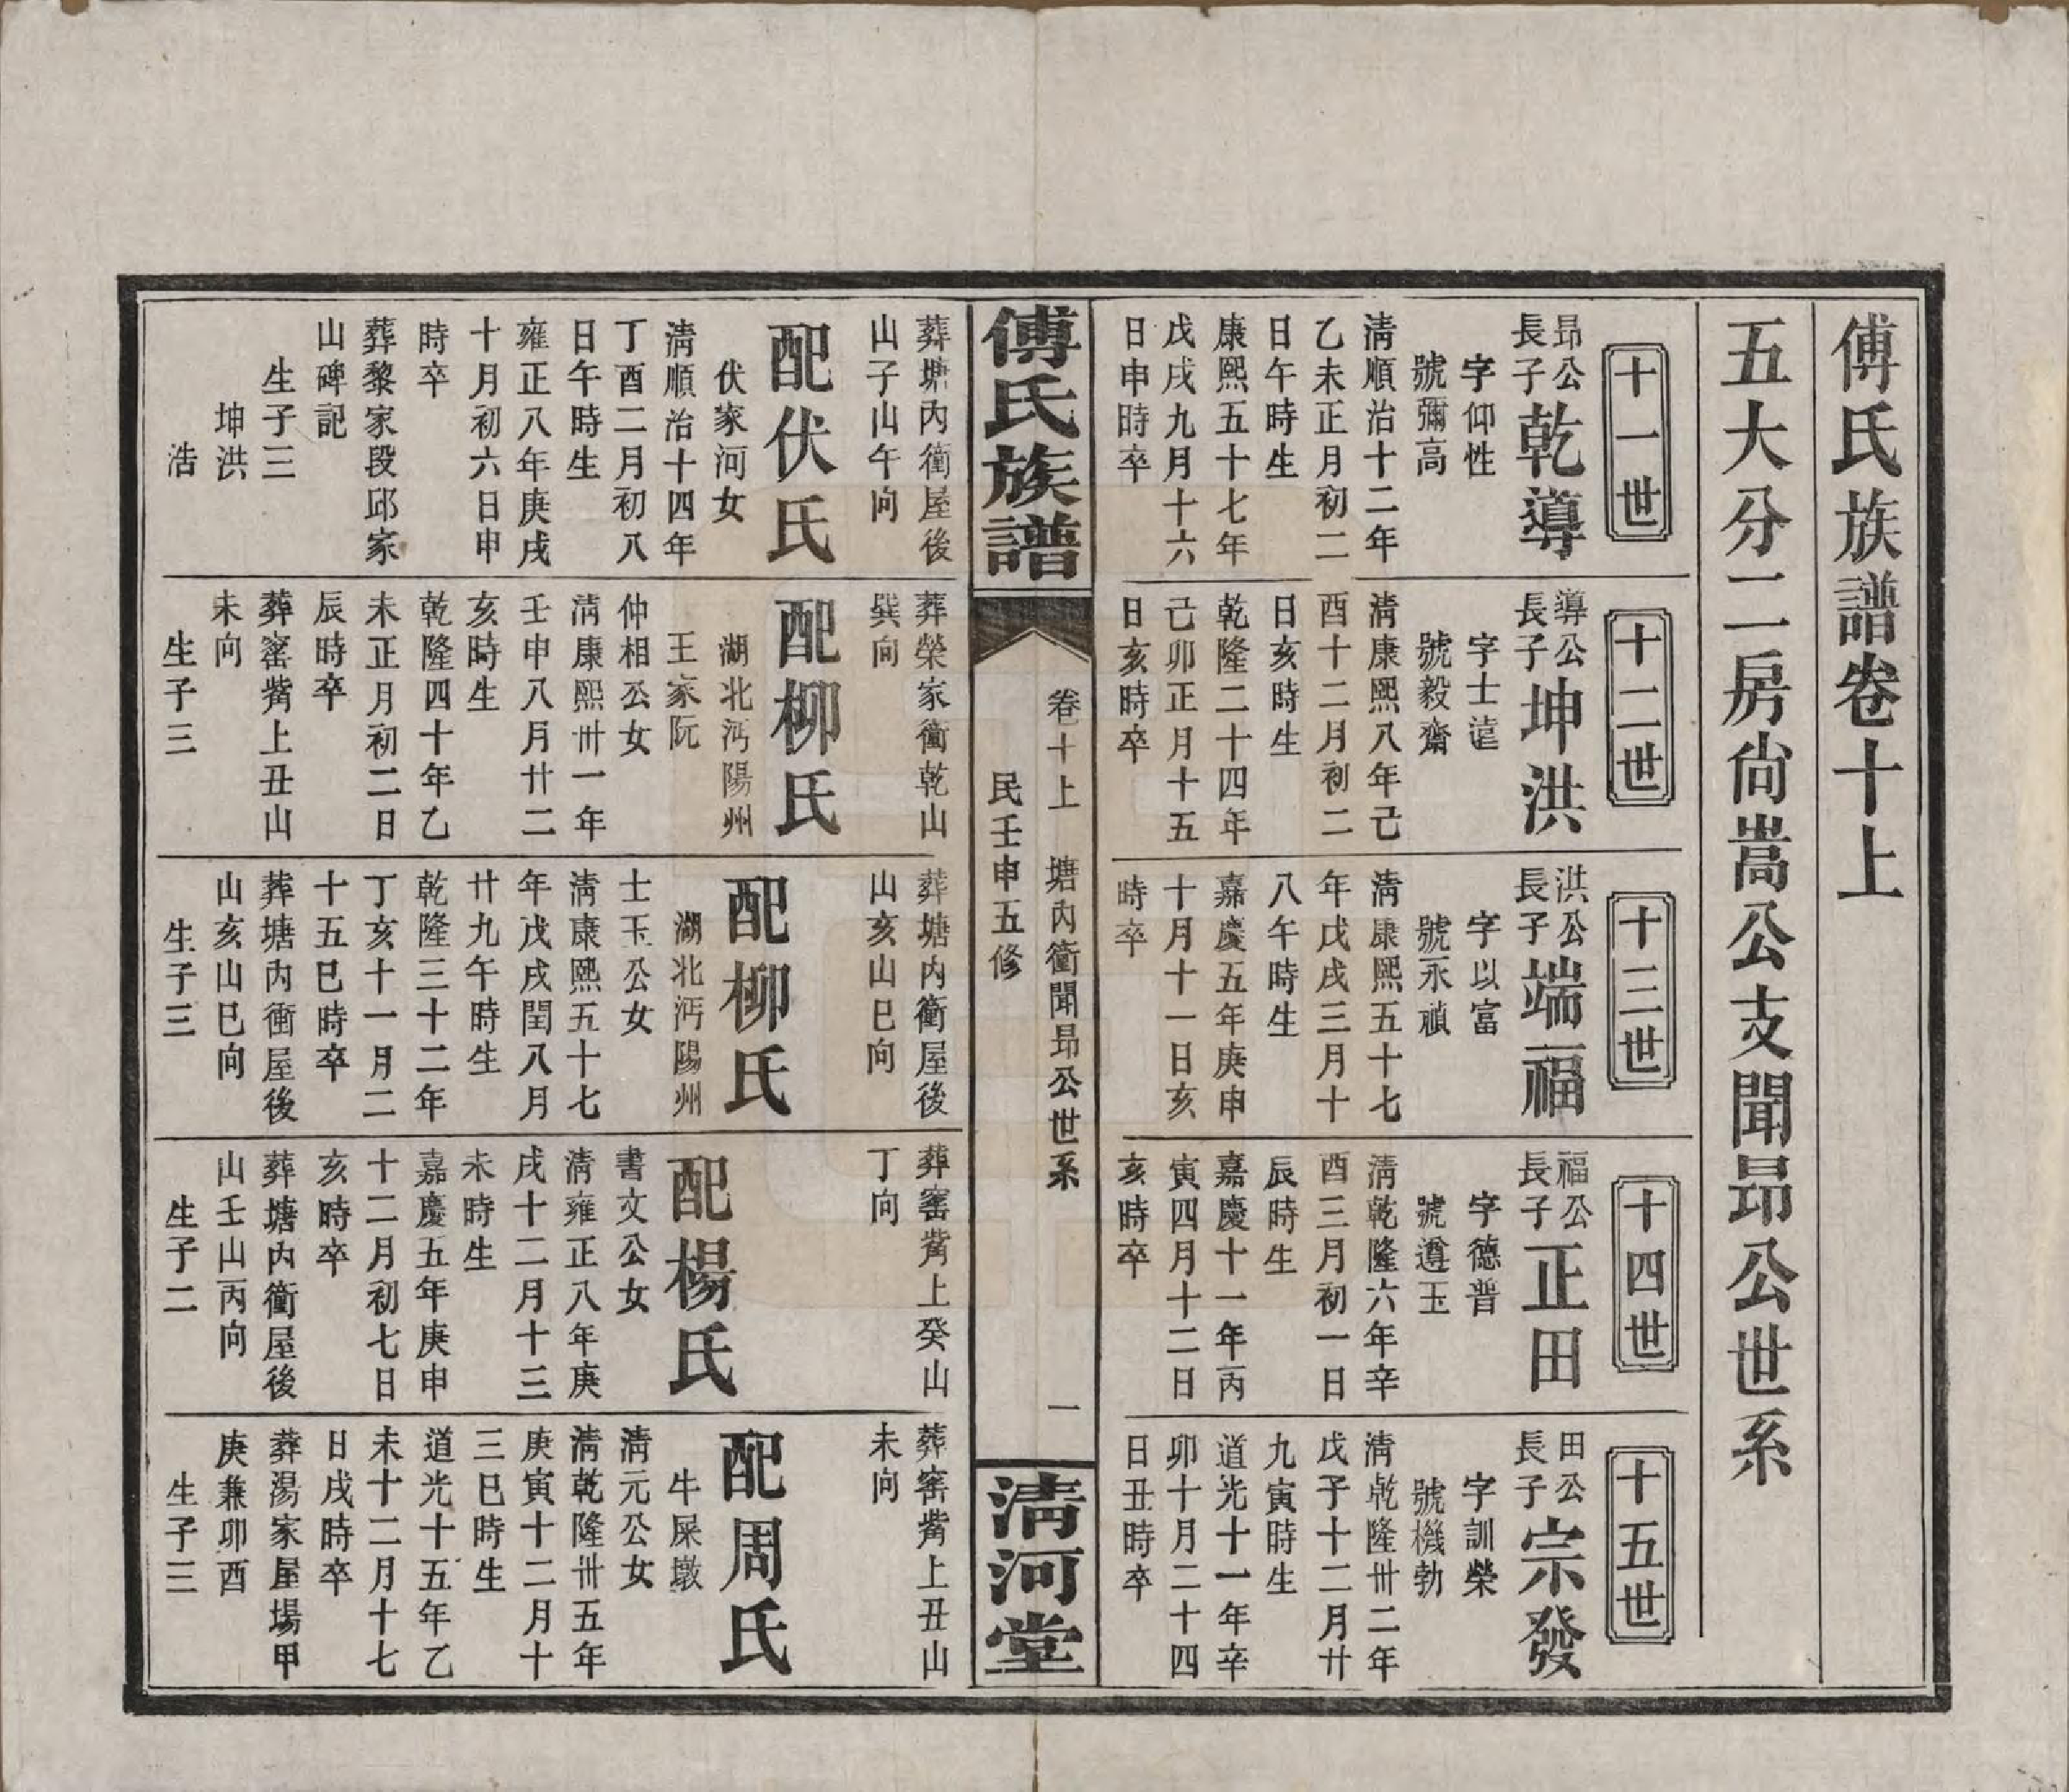 傅氏族譜卷十上
五大分二房尙嵩公支聞昻公世系
十一世
昻公
長子
乾導
字仰性
號彌高
淸順治十二年
乙未正月初二
日午時生
康熙五十七年
戊戌九月十六
日申時卒
葬塘內衝屋後
山子山午向
配伏氏
伏家河女
淸順治十四年
丁酉二月初八
日午時生
雍正八年庚戌
十月初六日申
時卒
葬黎家段邱家
山碑記
生子三
坤洪
浩
十二世
導公
長子
坤洪
字士遠
號毅齋
淸康熙八年己
酉十二月初二
日亥時生
乾隆二十四年
己卯正月十五
日亥時卒
葬榮家衝乾山
巽向
配柳氏
湖北沔陽州
王家阮
仲相公女
淸康熙卅一年
壬申八月廿二
亥時生
乾隆四十年乙
未正月初二日
辰時卒
葬窰嘴上丑山
未向
生子三
十三世
洪公
長子
端福
字以富
號永禎
淸康熙五十七
年戊戌三月十
八午時生
嘉慶五年庚申
十月十一日亥
時卒
葬塘內衝屋後
山亥山巳向
配柳氏
湖北沔陽州
士玉公女
淸康熙五十七
年戊戌閏八月
廿九午時生
乾隆三十二年
丁亥十一月二
十五巳時卒
葬塘內衝屋後
山亥山巳向
生子三
十四世
福公
長子
正田
字德普
號遵玉
淸乾隆六年辛
酉三月初一日
辰時生
嘉慶十一年丙
寅四月十二日
亥時卒
葬窰嘴上癸山
丁向
配楊氏
書文公女
淸雍正八年庚
戌十二月十三
未時生
嘉慶五年庚申
十二月初七日
亥時卒
葬塘內衝屋後
山壬山丙向
生子二
十五世
田公
長子
宗發
字訓榮
號機勃
淸乾隆卅二年
戊子十二月廿
九寅時生
道光十一年辛
卯十月二十四
日丑時卒
葬窰嘴上丑山
未向
配周氏
牛屎墩
淸元公女
淸乾隆卅五年
庚寅十二月十
三巳時生
道光十五年乙
未十二月十七
日戌時卒
葬湯家屋場甲
庚兼卯酉
生子三
傅氏族譜
卷十上 塘內衝聞昻公世系 一
民壬申五修
淸河堂